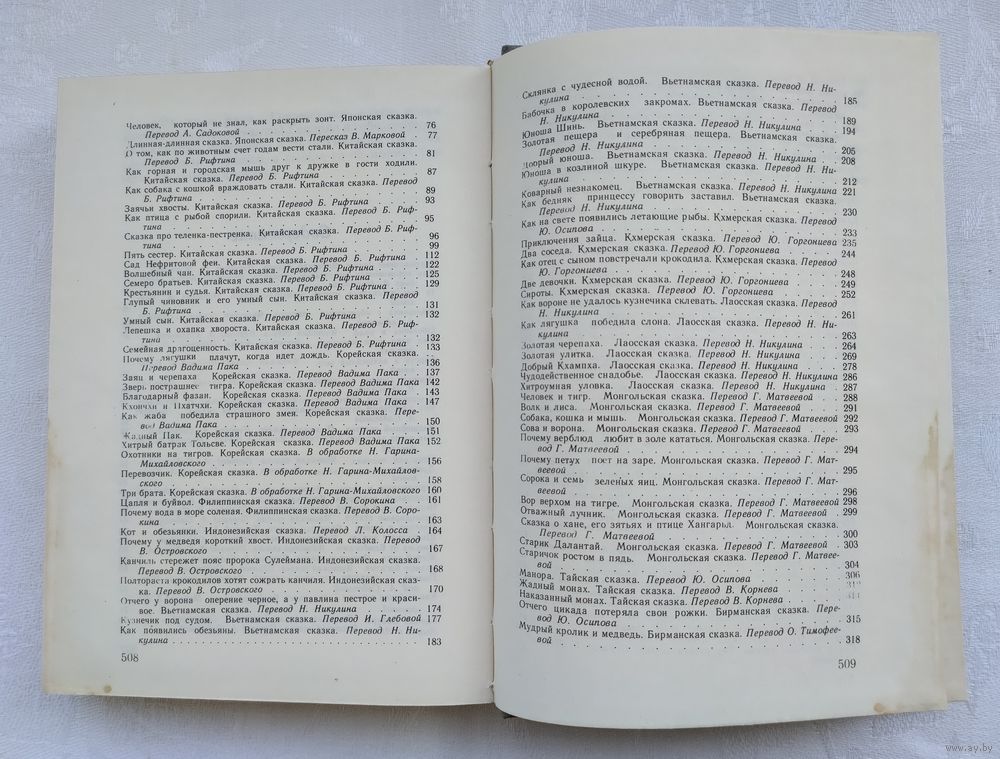 Человек, который не знал, как раскрыть зонт. Японская сказка.
Перевод А. Садоковой . . . 76
Длинная-длинная сказка. Японская сказка. Пересказ В. Марковой . 77
О том, как по животным счет годам вести стали. Китайская сказка.
Перевод Б. Рифтина . . . 81
Как горная и городская мышь друг к дружке в гости ходили.
Китайская сказка. Перевод Б. Рифтина . . . 87
Как собака с кошкой враждовать стали. Китайская сказка. Перевод
Б. Рифтина . . . 89
Заячьи хвосты. Китайская сказка. Перевод Б. Рифтина . . . 93
Как птица с рыбой спорили. Китайская сказка. Перевод Б. Риф-
тина . . . 95
Сказка про теленка-пестренка. Китайская сказка. Перевод Б. Риф-
тина . . . 96
Пять сестер. Китайская сказка. Перевод Б. Рифтина . . . 99
Сад Нефритовой феи. Китайская сказка. Перевод Б. Рифтина . . 112
Волшебный чан. Китайская сказка. Перевод Б. Рифтина . . . 122
Семеро братьев. Китайская сказка. Перевод Б. Рифтина . . . 125
Крестьянин и судья. Китайская сказка. Перевод Б. Рифтина . . . 129
Глупый чиновник и его умный сын. Китайская сказка. Перевод
Б. Рифтина . . . 131
Умный сын. Китайская сказка. Перевод Б. Рифтина . . . 132
Лепешка и охапка хвороста. Китайская сказка. Перевод Б. Риф-
тина . . . 132
Семейная драгоценность. Китайская сказка. Перевод Б. Рифтина . 133
Почему лягушки плачут, когда идет дождь. Корейская сказка.
Перевод Вадима Пака . . . 136
Заяц и черепаха Корейская сказка. Перевод Вадима Пака . . . 137
Зверь пострашнее тигра. Корейская сказка. Перевод Вадима Пака 142
Благодарный фазан. Корейская сказка. Перевод Вадима Пака . . 143
Кхончхи и Пхатчхи. Корейская сказка. Перевод Вадима Пака . . 147
Как жаба победила страшного змея. Корейская сказка. Пере-
вод Вадима Пака . . . 150
Жадный Пак. Корейская сказка. Перевод Вадима Пака . . . 151
Хитрый батрак Тольсве. Корейская сказка. Перевод Вадима Пака 152
Охотники на тигров. Корейская сказка. В обработке Н. Гарина-
Михайловского . . . 156
Перевозчик. Корейская сказка. В обработке Н. Гарина-Михайлов-
ского . . . 158
Три брата. Корейская сказка. В обработке Н. Гарина-Михайловского 160
Цапля и буйвол. Филиппинская сказка. Перевод В. Сорокина . . 161
Почему вода в море соленая. Филиппинская сказка. Перевод В. Соро-
кина . . . 163
Кот и обезьянки. Индонезийская сказка. Перевод Л. Колосса . . 164
Почему у медведя короткий хвост. Индонезийская сказка. Перевод
В. Островского . . . 167
Канчиль стережет пояс пророка Сулеймана. Индонезийская сказка.
Перевод В. Островского . . . 168
Полтораста крокодилов хотят сожрать канчиля. Индонезийская сказ-
ка. Перевод В. Островского . . . 170
Отчего у ворона оперение черное, а у павлина пестрое и краси-
вое. Вьетнамская сказка. Перевод Н. Никулина . . . 174
Кузнечик под судом. Вьетнамская сказка. Перевод И. Глебовой 177
Как появились обезьяны. Вьетнамская сказка. Перевод Н. Ни-
кулина . . . 183
508
Склянка с чудесной водой. Вьетнамская сказка. Перевод Н. Ни-
кулина . . . 185
Бабочка в королевских закромах. Вьетнамская сказка. Перевод
Н. Никулина . . . 189
Юноша Шинь. Вьетнамская сказка. Перевод Н. Никулина . . . 194
Золотая пещера и серебряная пещера. Вьетнамская сказка.
Перевод Н. Никулина . . . 205
Добрый юноша. Вьетнамская сказка. Перевод Н. Никулина . . 208
Юноша в козлиной шкуре. Вьетнамская сказка. Перевод Н. Ни-
кулина . . . 212
Коварный незнакомец. Вьетнамская сказка. Перевод Н. Никулина 221
Как бедняк принцессу говорить заставил. Вьетнамская сказка.
Перевод Н. Никулина . . . 230
Как на свете появились летающие рыбы. Кхмерская сказка. Перевод
Ю. Осипова . . . 233
Приключения зайца. Кхмерская сказка. Перевод Ю. Горгониева 235
Два соседа. Кхмерская сказка. Перевод Ю. Горгониева . . . 244
Как отец с сыном повстречали крокодила. Кхмерская сказка. Перевод
Ю. Горгониева . . . 248
Две девочки. Кхмерская сказка. Перевод Ю. Горгониева . . . 249
Сироты. Кхмерская сказка. Перевод Ю. Горгониева . . . 252
Как вороне не удалось кузнечика склевать. Лаосская сказка. Перевод
Н. Никулина . . . 261
Как лягушка победила слона. Лаосская сказка. Перевод Н. Ни-
кулина . . . 263
Золотая черепаха. Лаосская сказка. Перевод Н. Никулина . . 264
Золотая улитка. Лаосская сказка. Перевод Н. Никулина . . . 269
Добрый Кхампха. Лаосская сказка. Перевод Н. Никулина . . . 278
Чудодейственное снадобье. Лаосская сказка. Перевод Н. Никулина 286
Хитроумная уловка. Лаосская сказка. Перевод Н. Никулина . . 287
Человек и тигр. Монгольская сказка. Перевод Г. Матвеевой . . 288
Волк и лиса. Монгольская сказка. Перевод Г. Матвеевой . . . 291
Собака, кошка и мышь. Монгольская сказка. Перевод Г. Матвеевой 292
Сова и ворона. Монгольская сказка. Перевод Г. Матвеевой . . 293
Почему верблюд любит в золе кататься. Монгольская сказка. Пере-
вод Г. Матвеевой . . . 294
Почему петух поет на заре. Монгольская сказка. Перевод Г. Мат-
веевой . . . 295
Сорока и семь зеленых яиц. Монгольская сказка. Перевод Г. Мат-
веевой . . . 296
Вор верхом на тигре. Монгольская сказка. Перевод Г. Матвеевой 298
Отважный лучник. Монгольская сказка. Перевод Г. Матвеевой . 299
Сказка о хане, его зятьях и птице Хангарьд. Монгольская сказка.
Перевод Г. Матвеевой . . . 300
Старик Далантай. Монгольская сказка. Перевод Г. Матвеевой . . 303
Старичок ростом в пядь. Монгольская сказка. Перевод Г. Матвее-
вой . . . 304
Манора. Тайская сказка. Перевод Ю. Осипова . . . 306
Жадный монах. Тайская сказка. Перевод В. Корнева . . .
Наказанный монах. Тайская сказка. Перевод В. Корнева . . .
Отчего цикада потеряла свои рожки. Бирманская сказка. Пере-
вод Ю. Осипова . . . 315
Мудрый кролик и медведь. Бирманская сказка. Перевод О. Тимофее-
вой . . . 318
509
www.ay.by